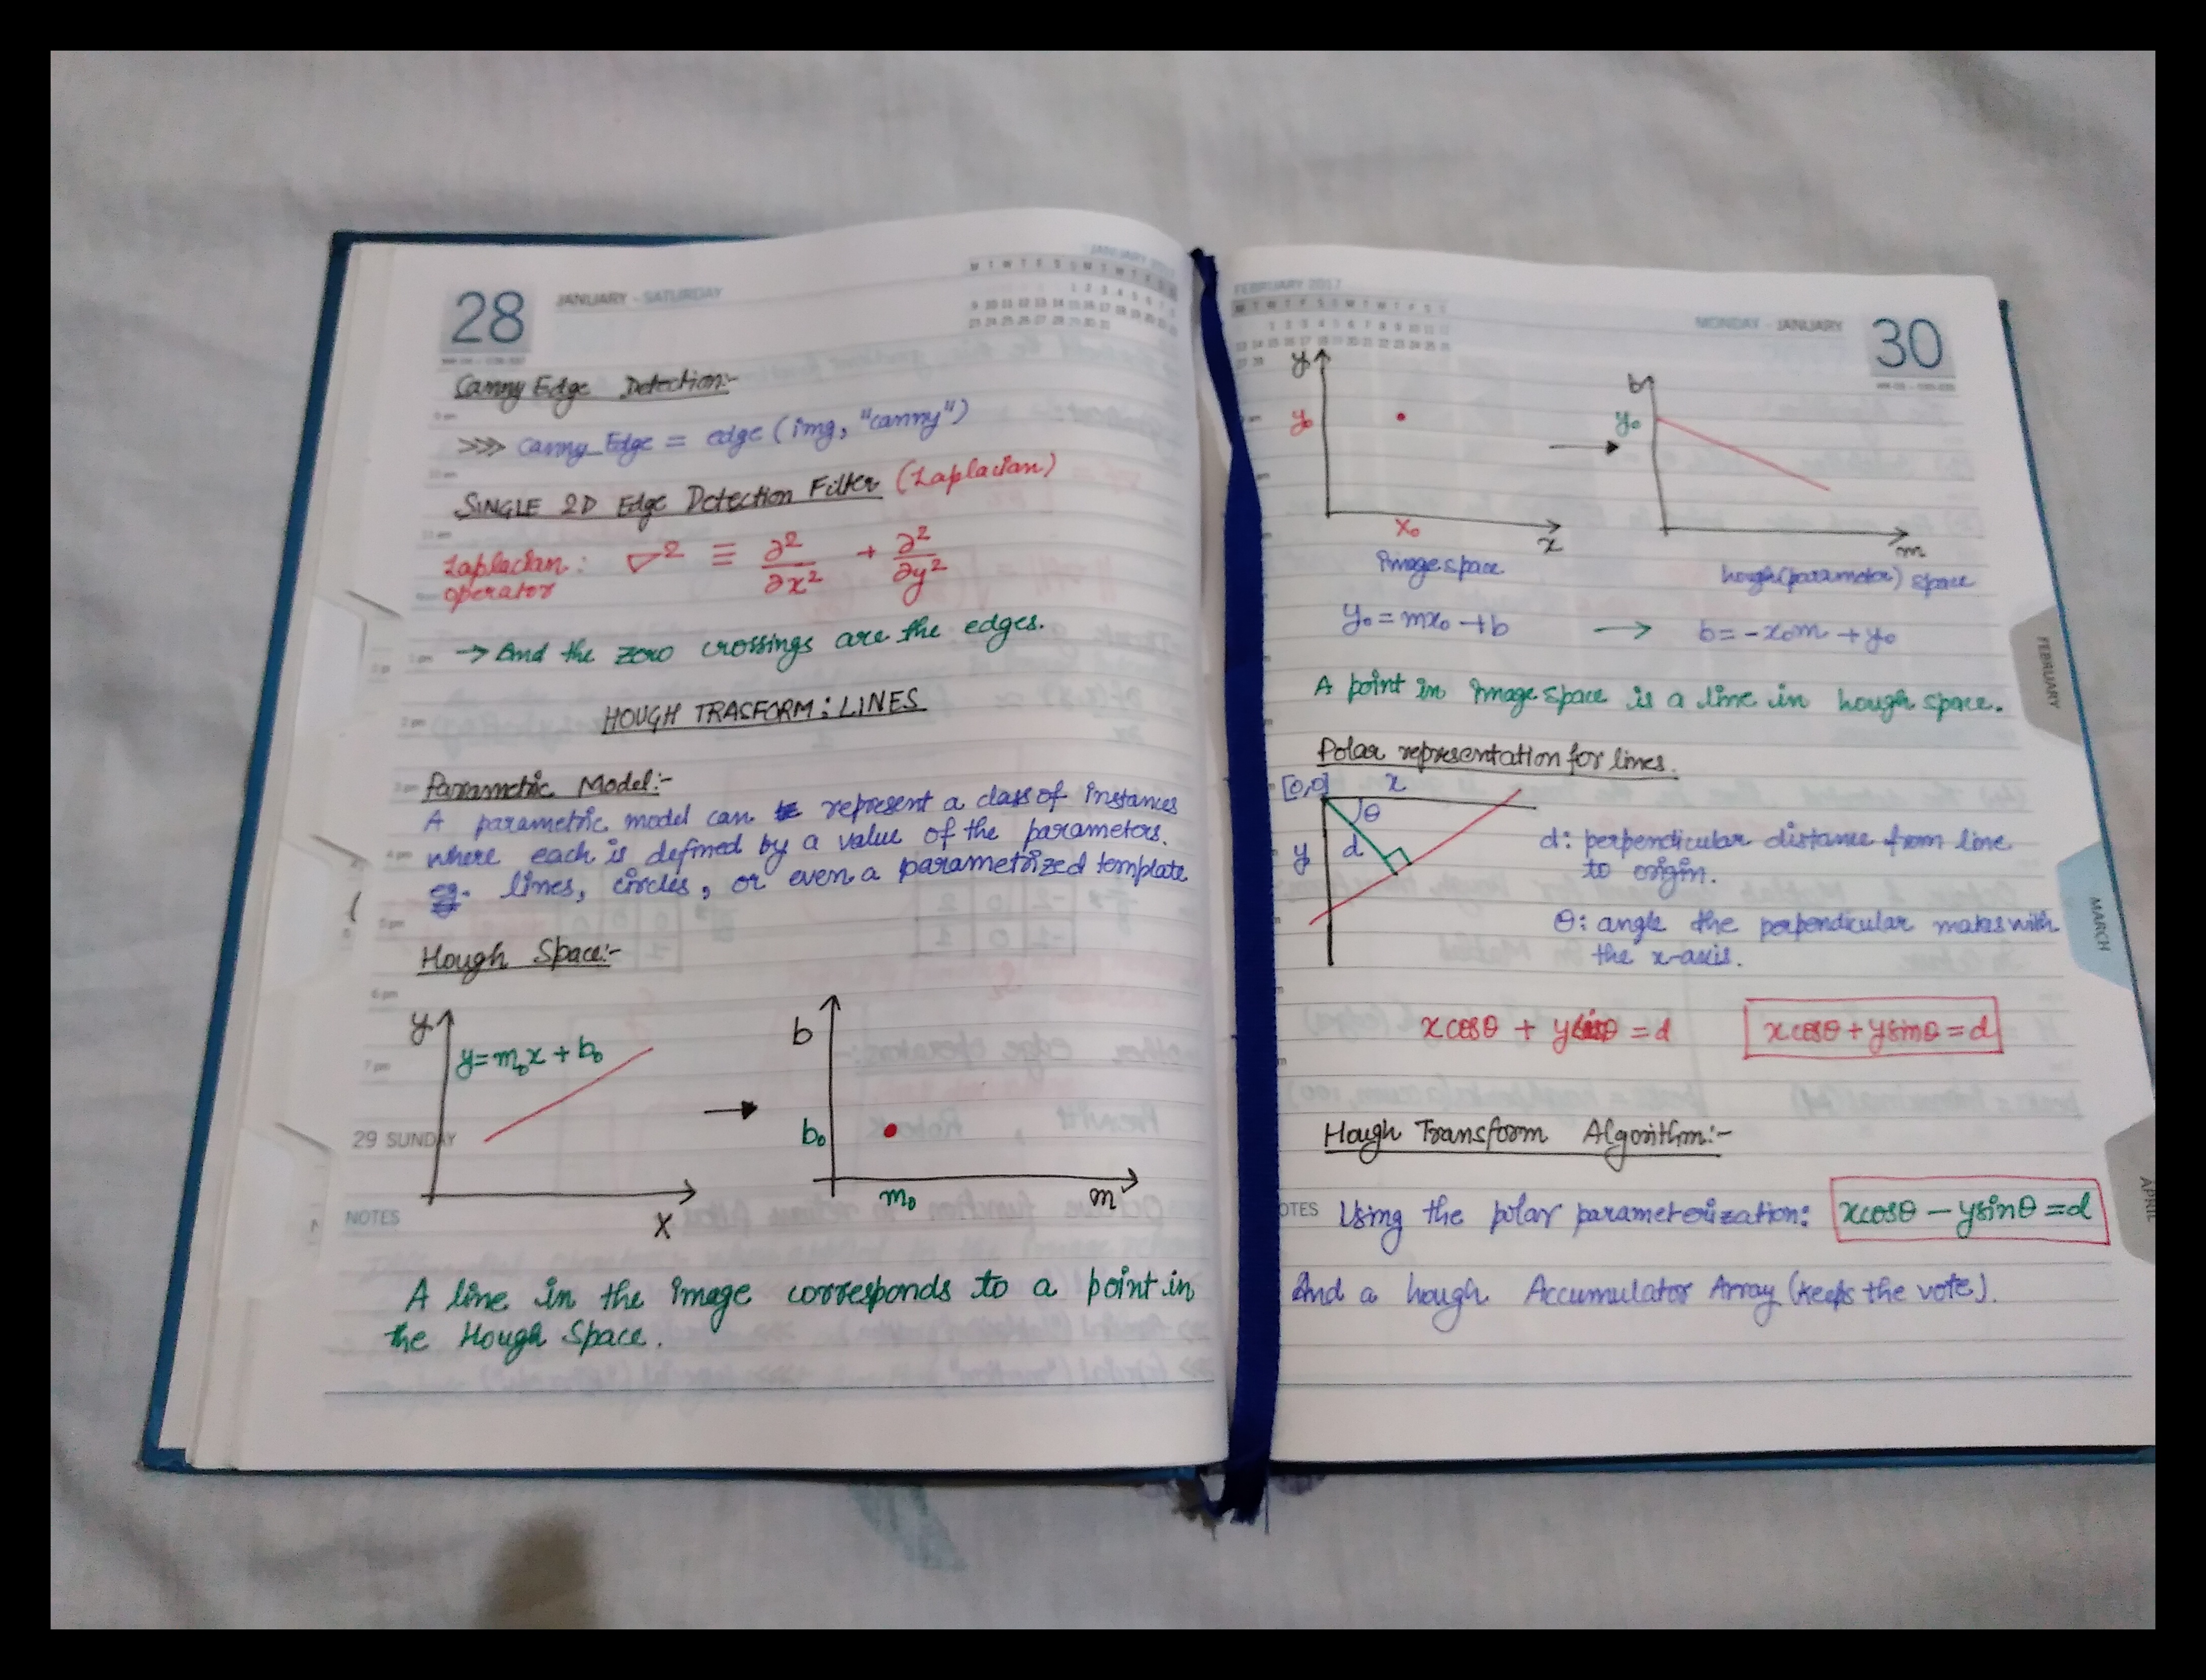 28
JANUARY - SATURDAY
JANUARY 2017
Canny Edge Detection:-
>>> Canny_Edge = edge (img, "canny")
SINGLE 2D Edge Detection Filter (Laplacian)
Laplacian operator : ∇² ≡ ∂²/∂x² + ∂²/∂y²
→ And the zero crossings are the edges.
HOUGH TRASFORM: LINES
Parametric Model:-
A parametric model can represent a class of instances
where each is defined by a value of the parameters.
eg. lines, circles, or even a parametrized template
Hough Space:-
y
y=m₀x + b₀
x
b
b₀
m₀
m
29 SUNDAY
NOTES
A line in the image corresponds to a point in
the Hough Space.
FEBRUARY 2017
MONDAY - JANUARY
30
y
y₀
x₀
x
b
y₀
m
Image space
hough(parameter) space
y₀ = mx₀ + b → b = -x₀m + y₀
A point in image space is a line in hough space.
Polar representation for lines.
[0,0]
x
θ
d
y
d: perpendicular distance from line
to origin.
θ: angle the perpendicular makes with
the x-axis.
xcosθ + ysinθ = d
xcosθ + ysinθ = d
Hough Transform Algorithm:-
Using the polar parameterization: xcosθ - ysinθ = d
And a hough Accumulator Array (keeps the vote).
FEBRUARY
MARCH
APRIL